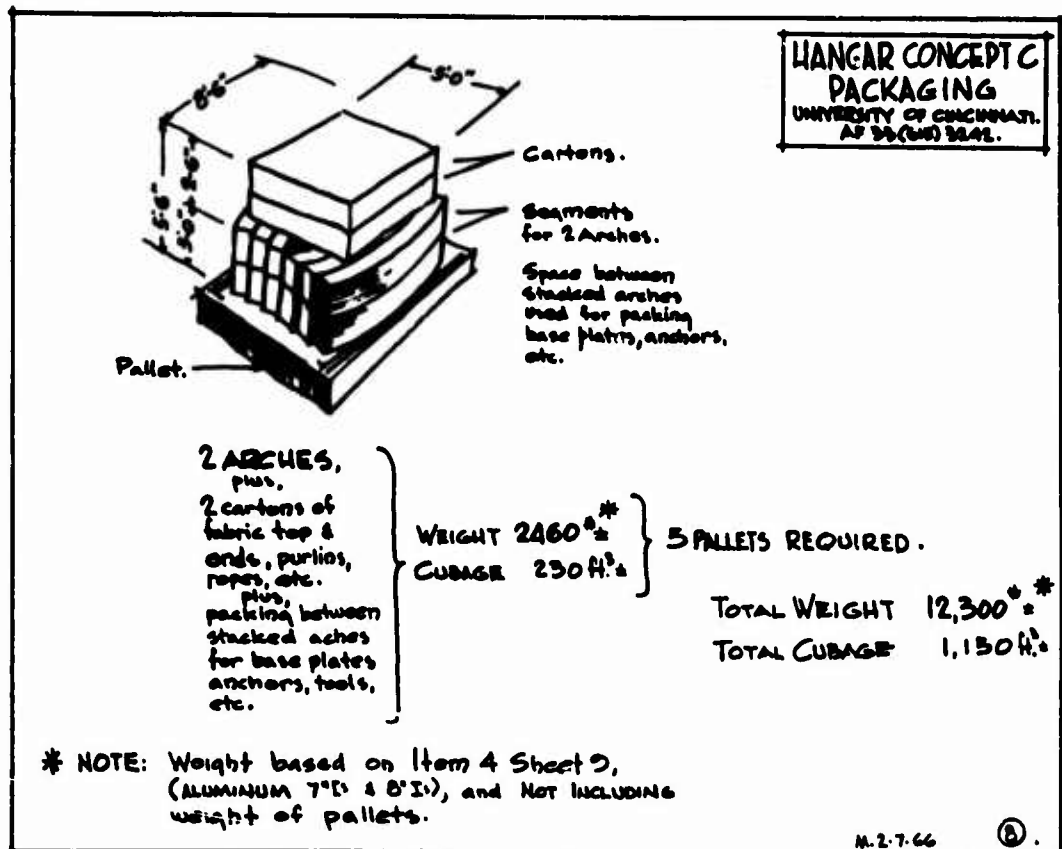 HANGAR CONCEPT C
PACKAGING
UNIVERSITY OF CINCINNATI.
AF 33(615) 3242.
8'6"
5'0"
5'6"
Cartons.
Segments
for 2 Arches.
Space between
stacked arches
used for packing
base plates, anchors,
etc.
Pallet.
2 ARCHES,
plus,
2 cartons of
fabric top &
ends, purlins,
ropes, etc.
plus,
packing between
stacked aches
for base plates
anchors, tools,
etc.
WEIGHT 2460#± *
CUBAGE 230 ft.³±
5 PALLETS REQUIRED.
TOTAL WEIGHT 12,300#± *
TOTAL CUBAGE 1,150 ft.³±
* NOTE: Weight based on Item 4 Sheet 9,
(ALUMINUM 7"Is & 8"Is), and NOT INCLUDING
weight of pallets.
M.2.7.66
8.